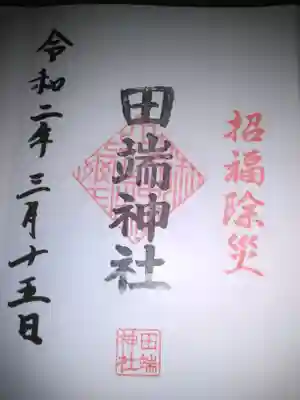 招福除災
田端神社
令和二年三月十五日
田端
神社